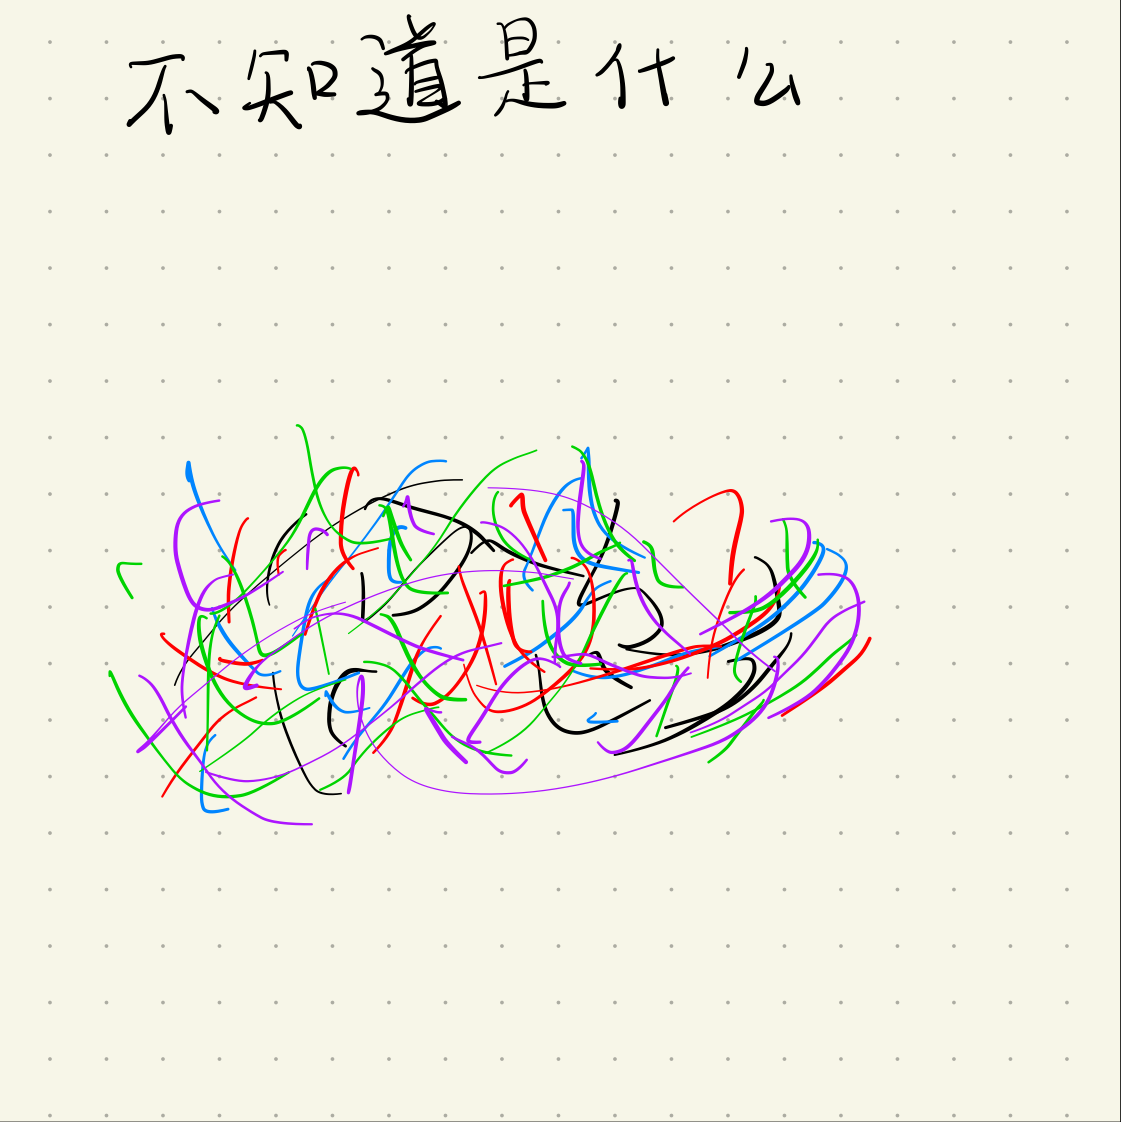 不知道是什么